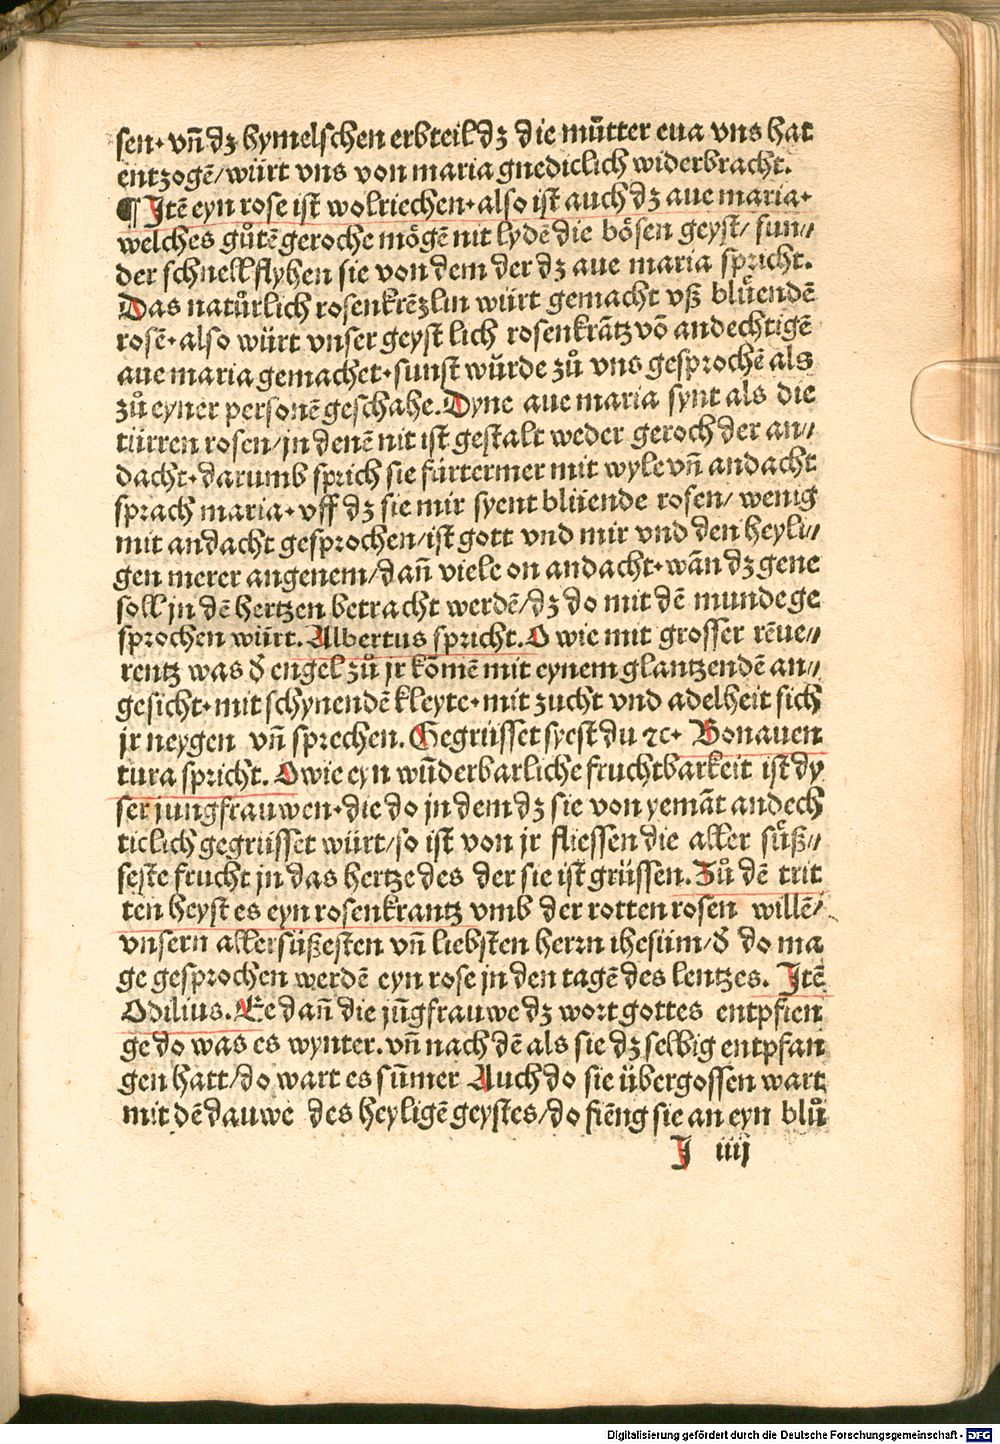 sen· vñ dz hymelschen erbteil dz die můtter eua vns hat
entzogē/ würt vns von maria gnediclich widerbracht.
¶ Jtē eyn rose ist wolriechen· also ist auch dz aue maria·
welches gůtē geroche mögē nit lydē die bösen geyst/ sun//
der schnell flyhen sie von dem der dz aue maria spricht.
Das natůrlich rosenkrēzlin würt gemacht vß blůendē
rosē· also würt vnser geystlich rosenkrātz vō andechtigē
aue maria gemachet· sunst wůrde zů vns gesprochē als
zů eyner personē geschahe. Dyne aue maria synt als die
türren rosen/ jn denē nit ist gestalt weder geroch der an//
dacht· darumb sprich sie fürtermer mit wyle vñ andacht
sprach maria· vff dz sie mir syent blüende rosen/ wenig
mit andacht gesprochen/ ist gott vnd mir vnd den heyli//
gen merer angenem/ dañ viele on andacht· wān dz gene
soll jn dē hertzen betracht werdē/ dz do mit dē munde ge
sprochen würt. Albertus spricht. O wie mit grosser rēue//
rentz was ð engel zů jr kōmē mit eynem glantzendē an//
gesicht· mit schynendē kleyte· mit zucht vnd adelheit sich
jr neygen vñ sprechen. Gegrüsset syest du ⁊c· Bonauen
tura spricht. O wie eyn wūderbarliche fruchtbarkeit ist dy
ser jungfrauwen· die do jn dem dz sie von yemāt andech
ticlich gegrüsset würt/ so ist von jr fliessen die aller sůß//
seste frucht jn das hertze des der sie ist grüssen. Zů dē trit
ten heyst es eyn rosenkrantz vmb der rotten rosen willē/
vnsern allersüßesten vñ liebsten herrn ihesum/ ð do ma
ge gesprochen werdē eyn rose jn den tagē des lentzes. Jtē
Odilius. Ee dañ die jūgfrauwe dz wort gottes entpfien
ge do was es wynter. vñ nach dē als sie dz selbig entpfan
gen hatt/ do wart es sūmer Auch do sie übergossen wart
mit dē dauwe des heyligē geystes/ do fiēng sie an eyn blů
J iiij
Digitalisierung gefördert durch die Deutsche Forschungsgemeinschaft - DFG